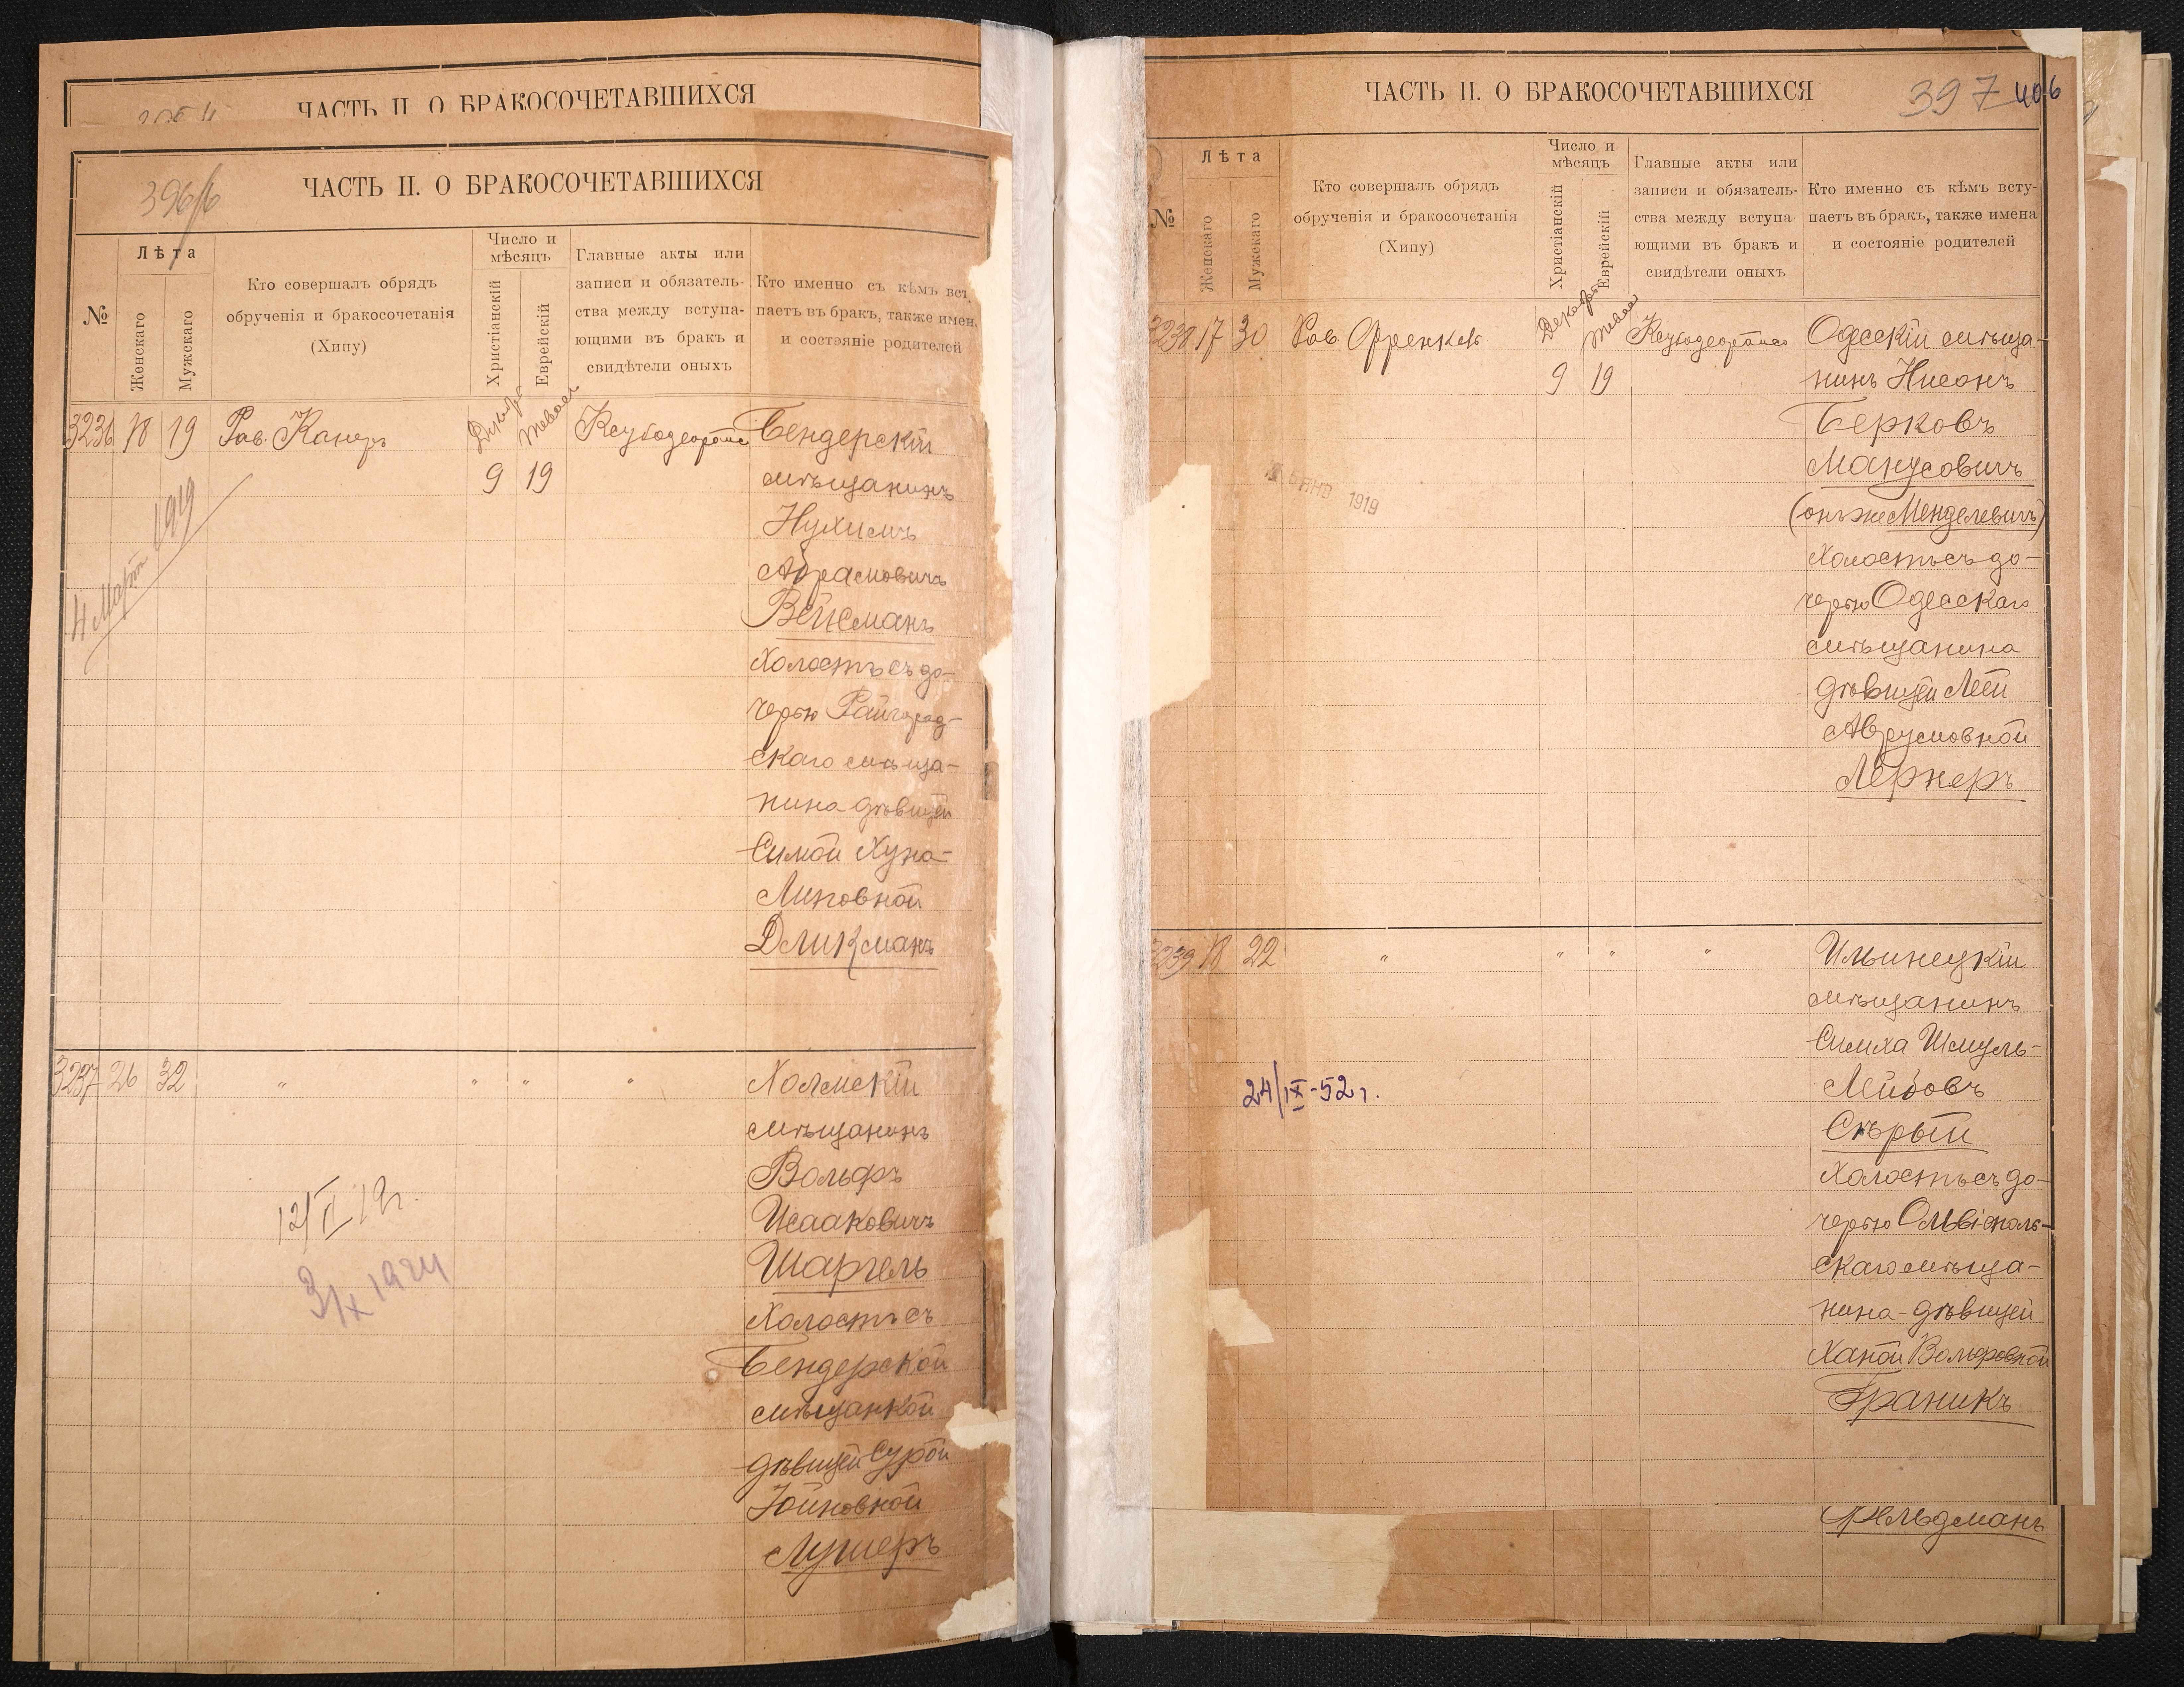 ЧАСТЬ II. О БРАКОСОЧЕТАВШИХСЯ
396/6
ЧАСТЬ II. О БРАКОСОЧЕТАВШИХСЯ
№
Лѣта
Женскаго
Мужскаго
Кто совершалъ обрядъ
обрученія и бракосочетанія
(Хипу)
Число и
мѣсяцъ
Христіанскій
Еврейскій
Главные акты или
записи и обязатель-
ства между вступа-
ющими въ бракъ и
свидѣтели оныхъ
Кто именно съ кѣмъ вст
паетъ въ бракъ, также имен
и состояніе родителей
3236 18 19 Рав. Канеръ
9 19
Бендерскій
мѣщанинъ
Нухимъ
Абрамовичъ
Вейсманъ
холостъ съ до-
черью Райгород-
скаго мѣща-
нина дѣвицей
Симой Хуна-
Липовной
Дликманъ
4 Март 1919
3237 26 32 " " " "
Холмскій
мѣщанинъ
Вольфъ
Исааковичъ
Шаргель
холостъ съ
Бендерской
мѣщанкой
дѣвицей Сурой
Іойновной
Лушеръ
12/II 19г.
3/IX 1924
ЧАСТЬ II. О БРАКОСОЧЕТАВШИХСЯ
397 406
№
Лѣта
Женскаго
Мужскаго
Кто совершалъ обрядъ
обрученія и бракосочетанія
(Хипу)
Число и
мѣсяцъ
Христіанскій
Еврейскій
Главные акты или
записи и обязатель-
ства между вступа-
ющими въ бракъ и
свидѣтели оныхъ
Кто именно съ кѣмъ всту-
паетъ въ бракъ, также имена
и состояніе родителей
3238 17 30 Рав. Френкель
9 19
Одесскій мѣща-
нинъ Нисонъ
Берковъ
Манусовичъ
(онъ же Менделевичъ)
холостъ съ до-
черью Одесскаго
мѣщанина
дѣвицей Леей
Аврумовной
Лернеръ
ЯНВ 1919
3239 18 22 " " " "
Ильинецкій
мѣщанинъ
Симха Шмуль-
Лейбовъ
Сѣрый
холостъ съ до-
черью Ольвіополь-
скаго мѣща-
нина-дѣвицей
Ханой Вольфовной
Граникъ
24/IX-52 г.
Фельдманъ